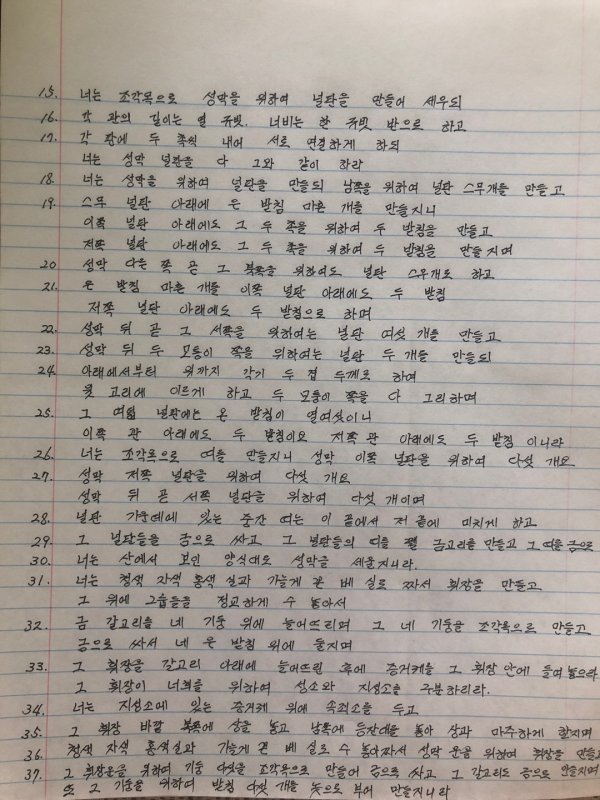 15. 너는 조각목으로 성막을 위하여 널판을 만들어 세우되
16. 각 판의 길이는 열 규빗. 너비는 한 규빗 반으로 하고
17. 각 판에 두 촉씩 내어 서로 연결하게 하되
너는 성막 널판을 다 그와 같이 하라
18. 너는 성막을 위하여 널판을 만들되 남쪽을 위하여 널판 스무개를 만들고
19. 스무 널판 아래에 은 받침 마흔 개를 만들지니
이쪽 널판 아래에도 그 두 촉을 위하여 두 받침을 만들고
저쪽 널판 아래에도 그 두 촉을 위하여 두 받침을 만들지며
20 성막 다른 쪽 곧 그 북쪽을 위하여도 널판 스무개로 하고
21. 은 받침 마흔 개를 이쪽 널판 아래에도 두 받침
저쪽 널판 아래에도 두 받침으로 하며
22. 성막 뒤 곧 그 서쪽을 위하여는 널판 여섯 개를 만들고
23. 성막 뒤 두 모퉁이 쪽을 위하여는 널판 두 개를 만들되
24. 아래에서부터 위까지 각기 두 겹 두께로 하여
윗 고리에 이르게 하고 두 모퉁이 쪽을 다 그리하며
25. 그 여덟 널판에는 은 받침이 열여섯이니
이쪽 판 아래에도 두 받침이요 저쪽 판 아래에도 두 받침 이니라
26. 너는 조각목으로 띠를 만들지니 성막 이쪽 널판을 위하여 다섯 개요
27. 성막 저쪽 널판을 위하여 다섯 개요
성막 뒤 곧 서쪽 널판을 위하여 다섯 개이며
28. 널판 가운데에 있는 중간 띠는 이 끝에서 저 끝에 미치게 하고
29. 그 널판들을 금으로 싸고 그 널판들의 띠를 꿸 금고리를 만들고 그 띠를 금으로
30. 너는 산에서 보인 양식대로 성막을 세울지니라.
31. 너는 청색 자색 홍색 실과 가늘게 꼰 베 실로 짜서 휘장을 만들고
그 위에 그룹들을 정교하게 수 놓아서
32. 금 갈고리를 네 기둥 위에 늘어뜨리며 그 네 기둥을 조각목으로 만들고
금으로 싸서 네 은 받침 위에 둘지며
33. 그 휘장을 갈고리 아래에 늘어뜨린 후에 증거궤를 그 휘장 안에 들여놓으라
그 휘장이 너희를 위하여 성소와 지성소를 구분하리라.
34. 너는 지성소에 있는 증거궤 위에 속죄소를 두고
35. 그 휘장 바깥 북쪽에 상을 놓고 남쪽에 등잔대를 놓아 상과 마주하게 할지며
36. 청색 자색 홍색실과 가늘게 꼰 베 실로 수 놓아짜서 성막 문을 위하여 휘장을 만들고
37. 그 휘장문을 위하여 기둥 다섯을 조각목으로 만들어 금으로 싸고 그 갈고리도 금으로 만들지며
또 그 기둥을 위하여 받침 다섯 개를 놋으로 부어 만들지니라